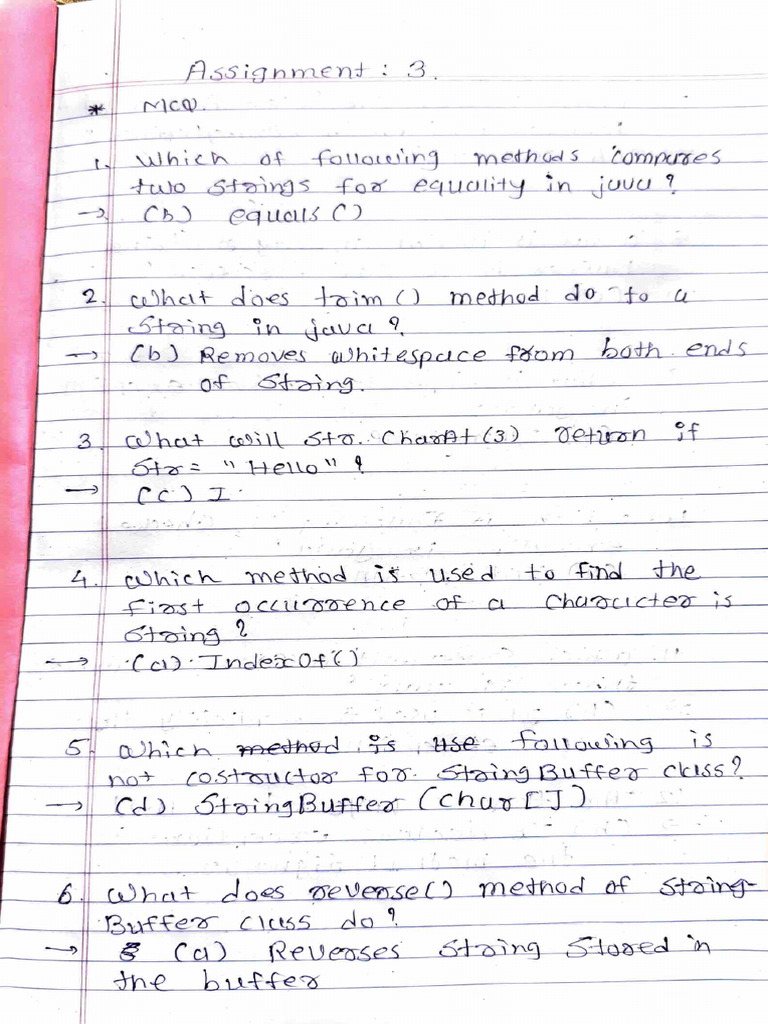 Assignment : 3.
* MCQ.
1. Which of following methods compares
two strings for equality in java ?
→ (b) equals ()
2. What does trim () method do to a
string in java ?
→ (b) Removes whitespace from both ends
of string.
3. What will str. CharAt (3) return if
Str = "Hello" ?
→ (c) I
4. which method is used to find the
first occurrence of a character is
string ?
→ (a) IndexOf()
5. which method is use following is
not costructor for StringBuffer class?
→ (d) StringBuffer (char [])
6. What does reverse() method of string-
Buffer class do ?
→ (a) Reverses string stored in
the buffer